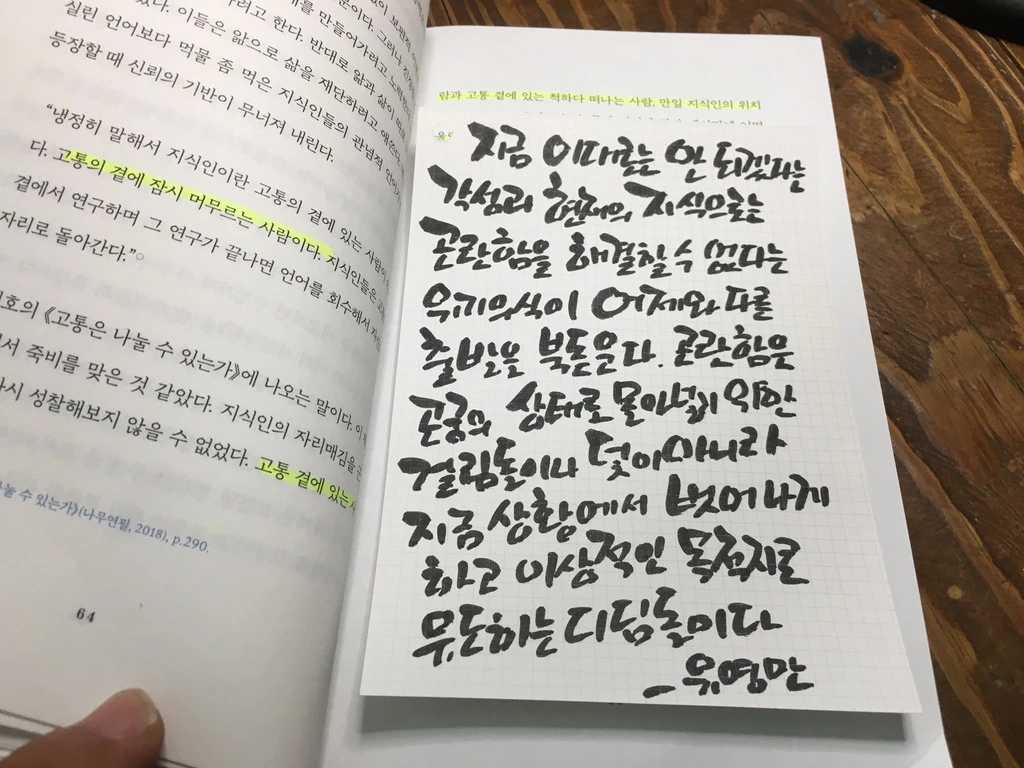 실린 언어보다 먹물 좀 먹은 지식인들의 관념적
등장할 때 신뢰의 기반이 무너져 내린다.
“냉정히 말해서 지식인이란 고통의 곁에 있는 사람이
다. 고통의 곁에 잠시 머무르는 사람이다. 지식인들은
곁에서 연구하며 그 연구가 끝나면 언어를 회수해서
자리로 돌아간다.”
호의 《고통은 나눌 수 있는가》에 나오는 말이다.
서 죽비를 맞은 것 같았다. 지식인의 자리매김을
다시 성찰해보지 않을 수 없었다. 고통 곁에 있는
눌 수 있는가》(나무연필, 2018), p.290.
64
람과 고통 곁에 있는 척하다 떠나는 사람, 만일 지식인의 위치
지금 이대로는 안 되겠다는
각성과 현재의 지식으로는
곤란함을 해결할 수 없다는
위기의식이 어제와 다른
출발을 북돋운다. 곤란함은
곤궁의 상태로 몰아넣기 위한
걸림돌이나 덫이 아니라
지금 상황에서 벗어나게
하고 이상적인 목적지로
유도하는 디딤돌이다
- 유영만